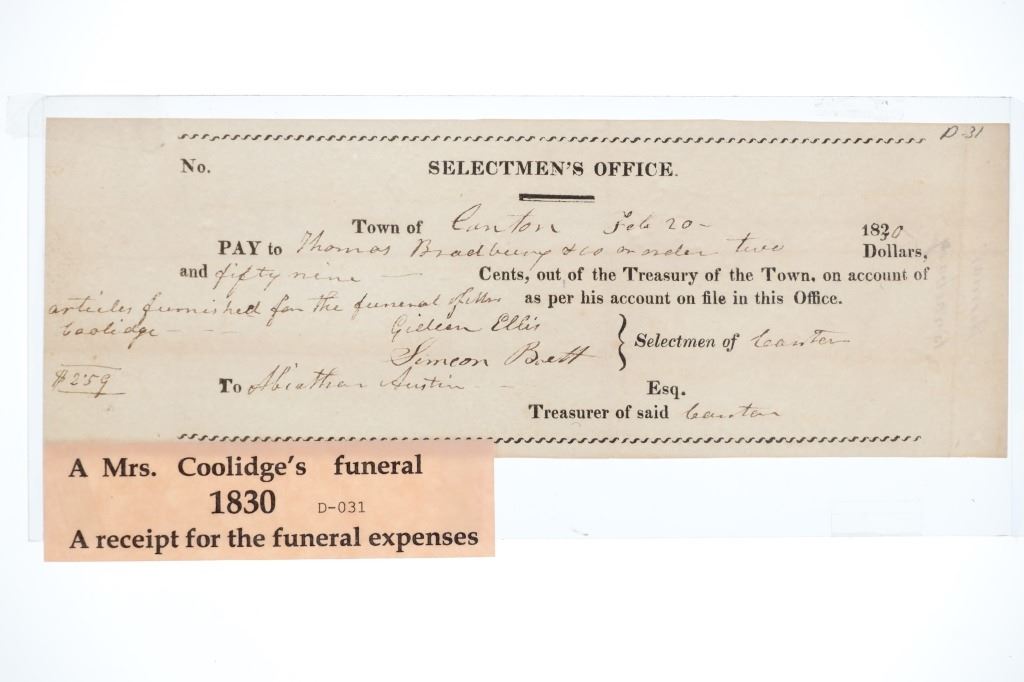 D-31
No. SELECTMEN'S OFFICE.
Town of Canton Feb 20 - 1830
PAY to Thomas Bradbury & co or order two Dollars,
and fifty nine — Cents, out of the Treasury of the Town, on account of
articles furnished for the funeral of Mrs as per his account on file in this Office.
Coolidge - - -
Gideon Ellis
Simeon Brett } Selectmen of Canton
$2.59
To Abiathar Austin - - Esq.
Treasurer of said Canton
A Mrs. Coolidge's funeral
1830 D-031
A receipt for the funeral expenses